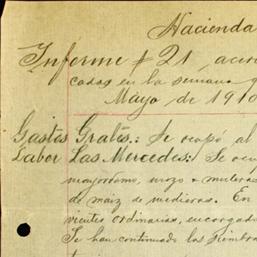 Hacienda
Informe # 21 acer
cadas en la semana q
Mayo de 1910
Gastos Grales.: Se ocupó al
Labor Las Mercedes: Se ocu
mayordomo, mozo
de maiz de medieros. En
vientes ordinarios, encargado
Se han continuado las siembra